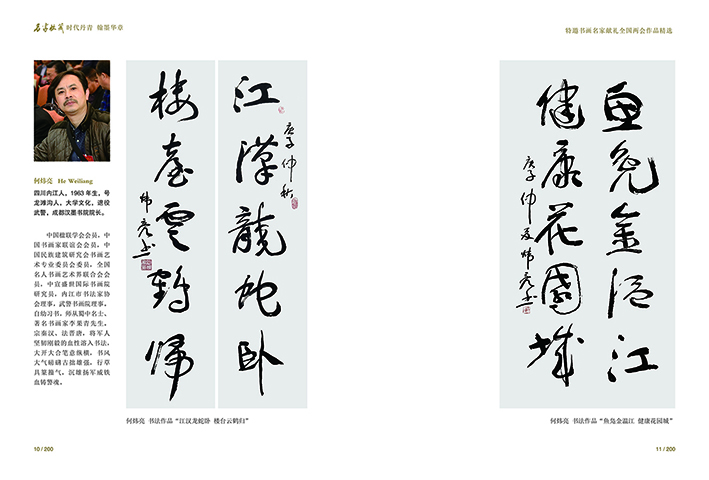 名家收藏 时代丹青 翰墨华章
特邀书画名家献礼全国两会作品精选
何炜亮 He Weiliang
四川内江人，1963 年生，号
龙滩沟人，大学文化，退役
武警，成都汉墨书院院长。
中国楹联学会会员，中
国书画家联谊会会员，中
国民族建筑研究会书画艺
术专业委员会委员，全国
名人书画艺术界联合会会
员，中宣盛世国际书画院
研究员，内江市书法家协
会理事，武警书画院理事，
自幼习书，师从蜀中名士、
著名书画家李果青先生。
宗秦汉、法晋唐，将军人
坚韧刚毅的血性溶入书法，
大开大合笔意纵横，书风
大气磅礴古拙雄强，行草
具篆籀气。沉雄扬军威铁
血铸警魂。
江漢龍蛇卧
庚子仲秋
楼臺雲鶴归
炜亮书
何炜亮 书法作品“江汉龙蛇卧 楼台云鹤归”
10 / 200
鱼凫金温江
健康花園城
庚子仲夏炜亮书
何炜亮 书法作品“鱼凫金温江 健康花园城”
11 / 200